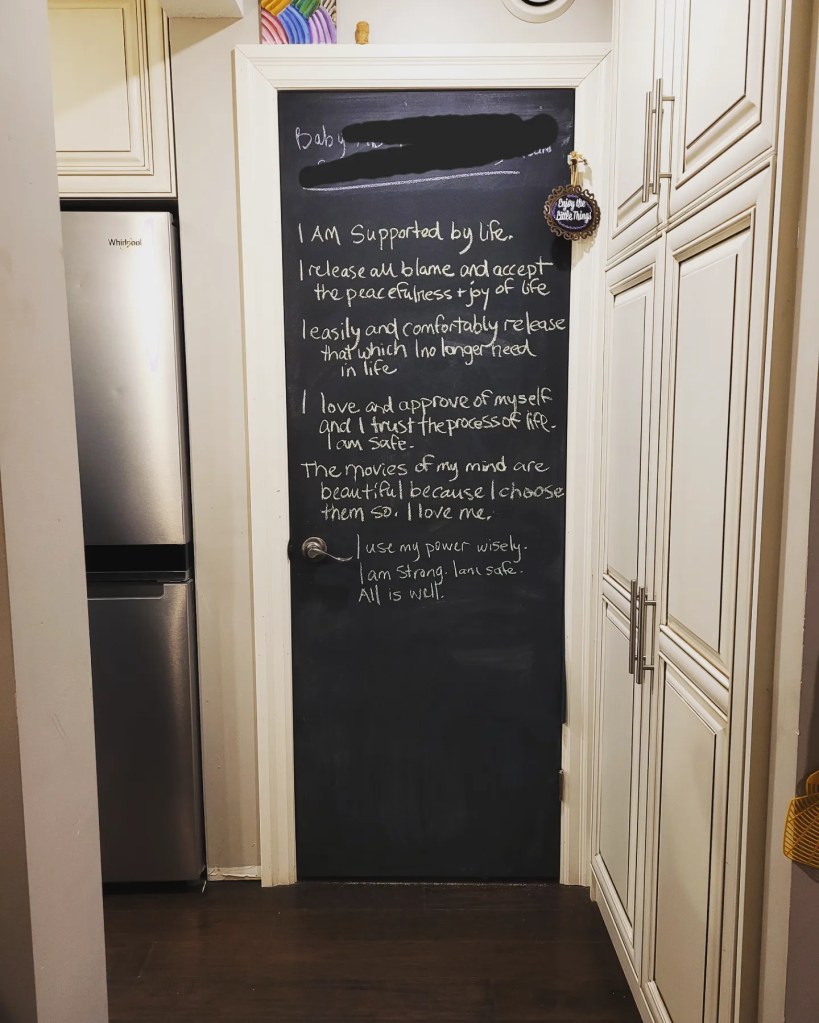 Baby
Whirlpool
Enjoy the
Little Things
I AM Supported by life.
I release all blame and accept
the peacefulness + joy of life
I easily and comfortably release
that which I no longer need
in life
I love and approve of myself
and I trust the process of life.
I am safe.
The movies of my mind are
beautiful because I choose
them so. I love me.
I use my power wisely.
I am Strong. I am safe.
All is well.